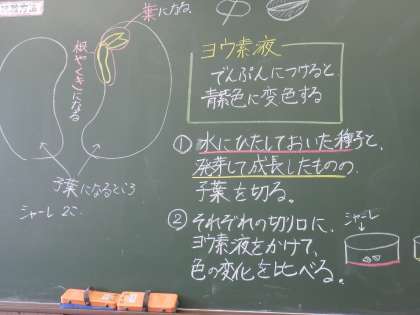 葉になる
根やくきになる
子葉になるところ
シャーレ 2こ
ヨウ素液
でんぷんにつけると、
青紫色に変色する
① 水にひたしておいた種子と、
発芽して成長したものの
子葉を切る。
② それぞれの切り口に、
ヨウ素液をかけて、
色の変化を比べる。
シャーレ